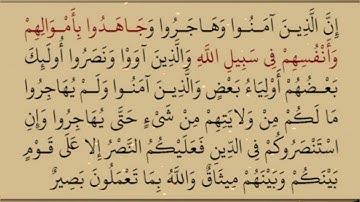 إِنَّ الَّذِينَ آمَنُوا وَهَاجَرُوا وَجَاهَدُوا بِأَمْوَالِهِمْ
وَأَنْفُسِهِمْ فِي سَبِيلِ اللَّهِ وَالَّذِينَ آوَوْا وَنَصَرُوا أُولَئِكَ
بَعْضُهُمْ أَوْلِيَاءُ بَعْضٍ وَالَّذِينَ آمَنُوا وَلَمْ يُهَاجِرُوا
مَا لَكُمْ مِنْ وَلَايَتِهِمْ مِنْ شَيْءٍ حَتَّى يُهَاجِرُوا وَإِنِ
اسْتَنْصَرُوكُمْ فِي الدِّينِ فَعَلَيْكُمُ النَّصْرُ إِلَّا عَلَى قَوْمٍ
بَيْنَكُمْ وَبَيْنَهُمْ مِيثَاقٌ وَاللَّهُ بِمَا تَعْمَلُونَ بَصِيرٌ